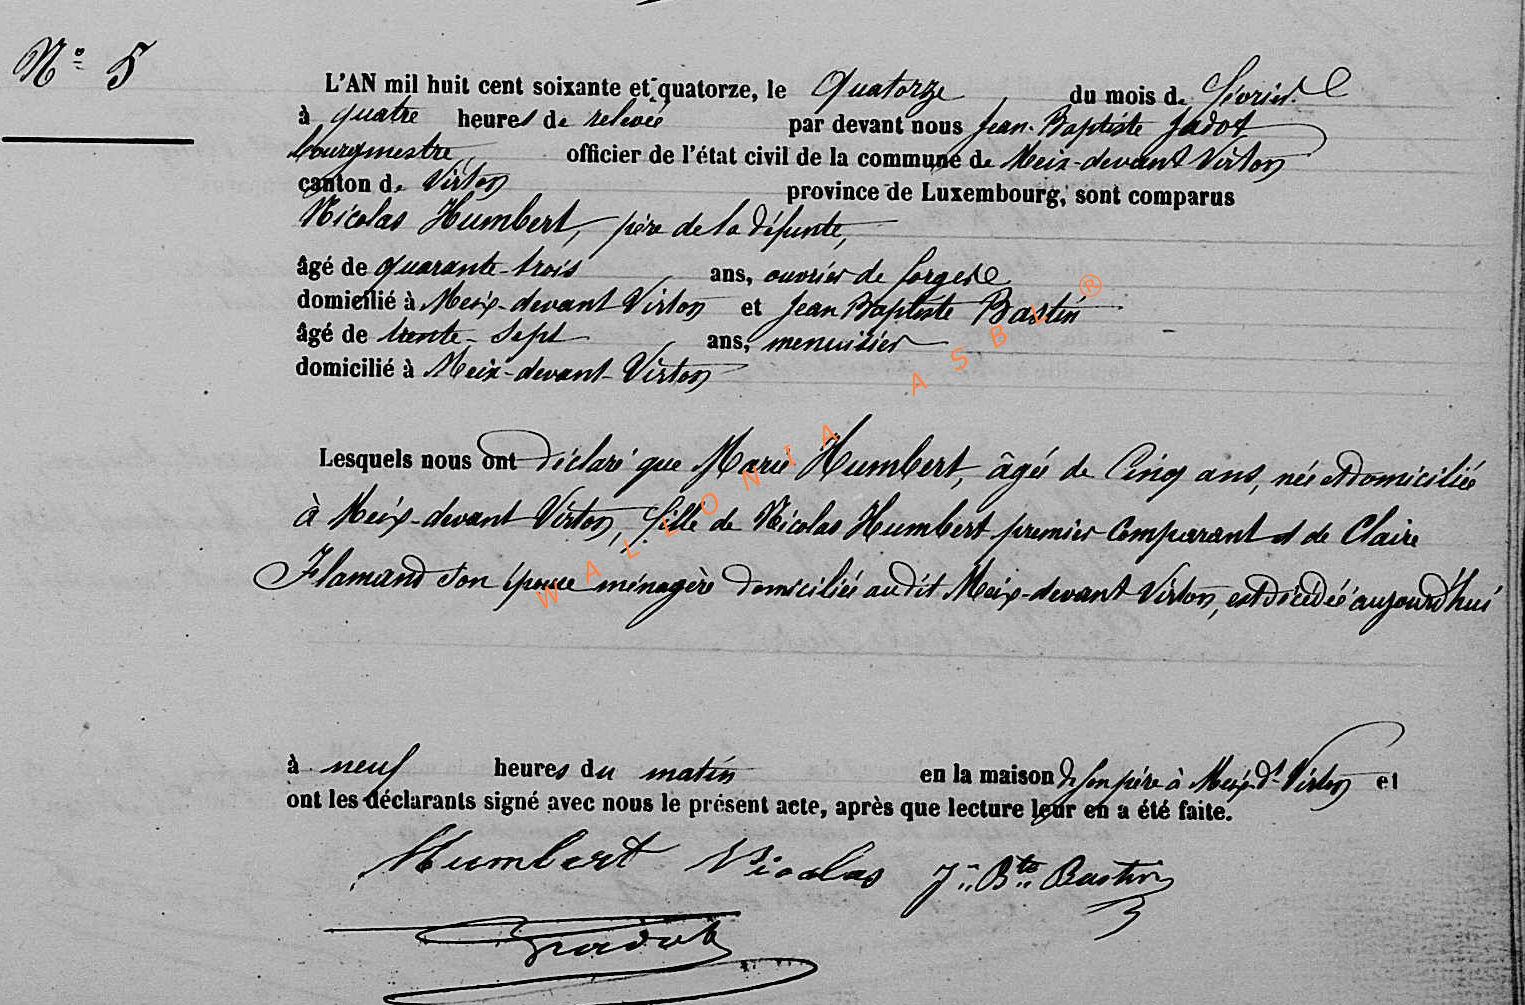 N° 5
L'AN mil huit cent soixante et quatorze, le Quatorze du mois de février
à quatre heures de relevée par devant nous Jean-Baptiste Jadot
bourgmestre officier de l'état civil de la commune de Meix-devant Virton
canton de Virton province de Luxembourg, sont comparus
Nicolas Humbert, père de la défunte,
âgé de quarante-trois ans, ouvrier de forges
domicilié à Meix-devant Virton et Jean Baptiste Bastin
âgé de trente-sept ans, menuisier
domicilié à Meix-devant-Virton
Lesquels nous ont déclaré que Marie Humbert, âgée de Cinq ans, née et domiciliée
à Meix-devant Virton, fille de Nicolas Humbert premier Comparant et de Claire
Flamand son épouse ménagère domiciliée audit Meix-devant Virton, est décédée aujourd'hui
à neuf heures du matin en la maison de son père à Meix-dt Virton et
ont les déclarants signé avec nous le présent acte, après que lecture leur en a été faite.
Humbert Nicolas J.n B.te Bastin
Jadot
WALLONIA ASBL ®